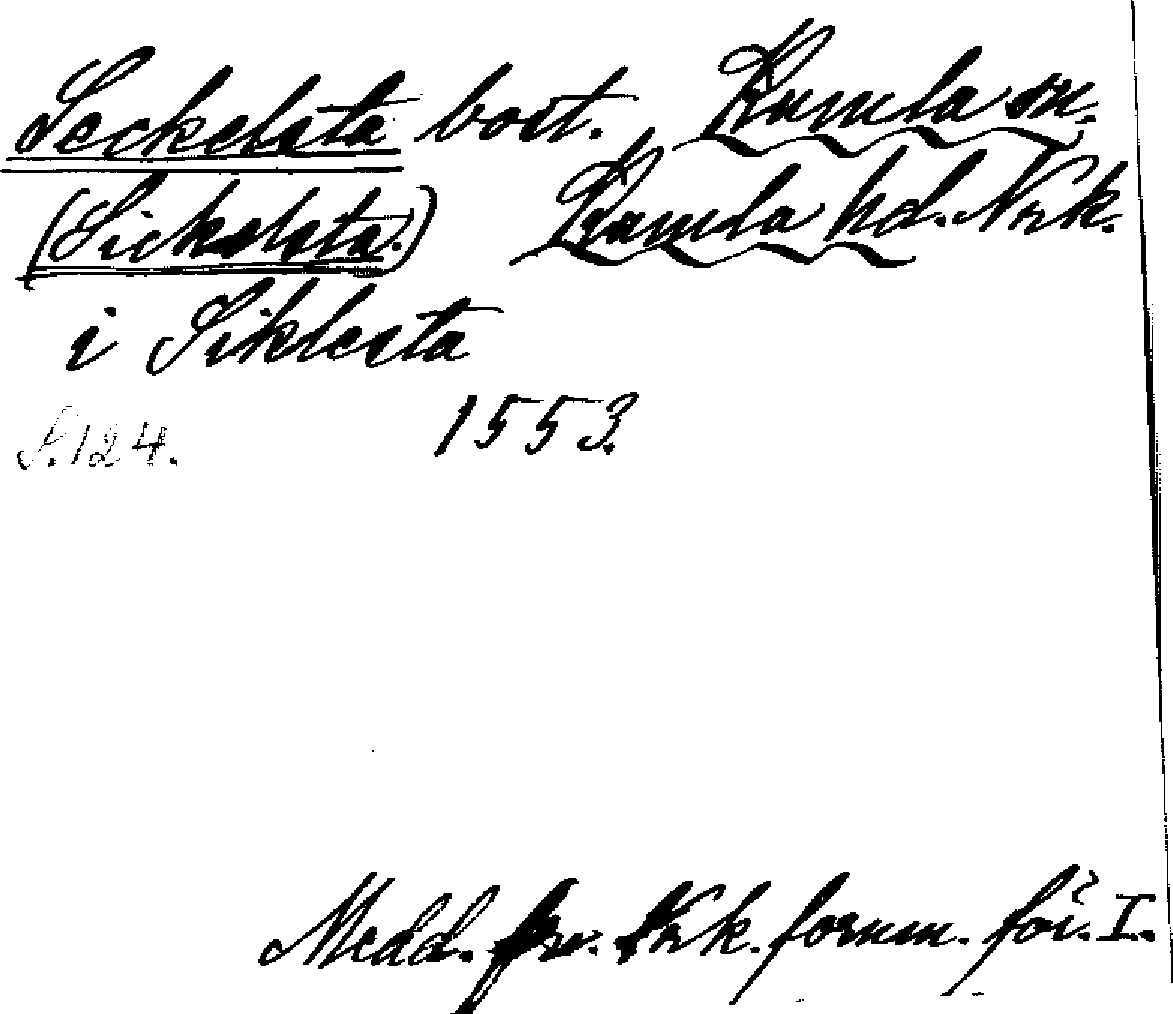 Seckelsta bost. Kumla sn.
(Sickelsta.) Kumla hd. Nrk.
i Siklesta
S. 124. 1553.
Medd. fr. Nrk. fornm. för. I.